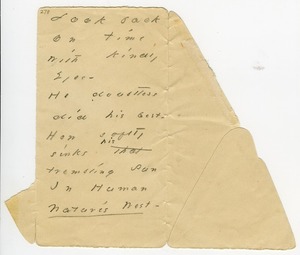 Look back
On time,
with kindly
Eyes -
He doubtless
did his best -
How softly
his
sinks that
trembling sun
In Human
Nature's West -